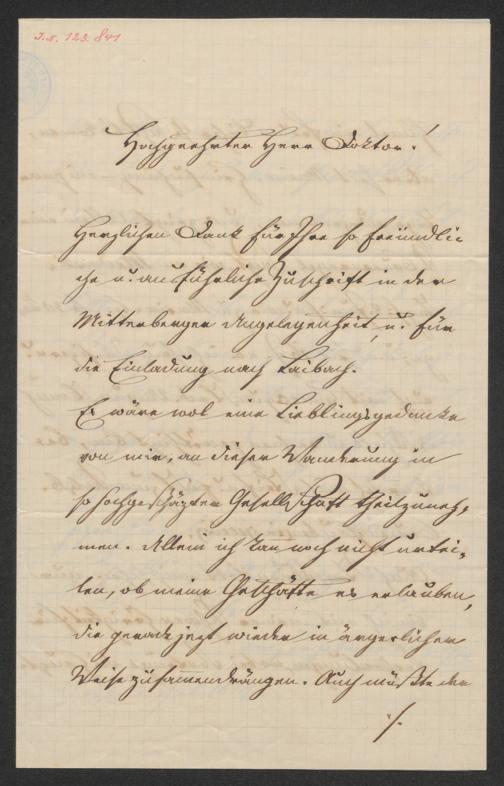 J.N. 123.841
Hochgeehrter Herr Doktor!
Herzlichen Dank für Ihre so freundli-
che u. ausführliche Zuschrift in der
Mitterberger Angelegenheit, u. für
die Einladung nach Laibach.
Es wäre wol eine Lieblingsgedanke
von mir, an dieser Wanderung in
so hochgeschäzter Gesellschaft theilzuneh-
men. Allein ich kan noch nicht urtei-
len, ob meine Geschäfte es erlauben,
die gerade jezt wieder in ärgerlicher
Weise zusamendrängen. Auch müßte der
./.